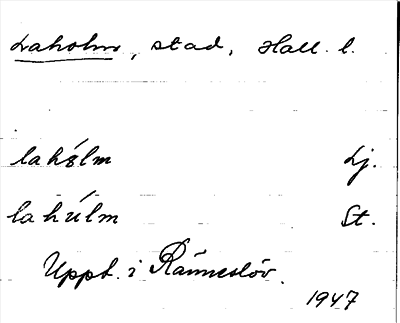 Laholm, stad, Hall. l.
lahólm Lj.
lahúlm St.
Uppt. i Ränneslöv.
1947